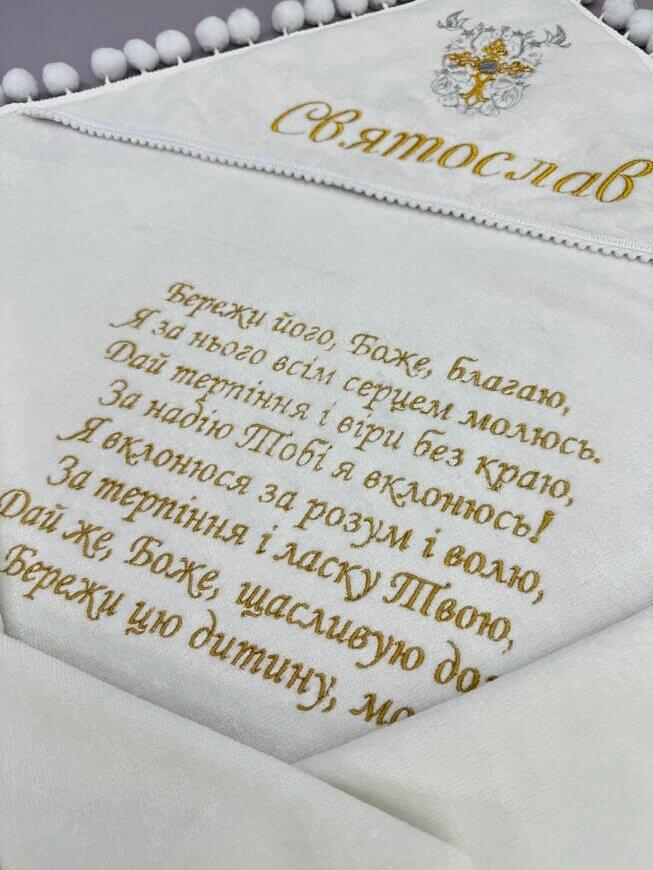 Святослав
Бережи його, Боже, благаю,
Я за нього всім серцем молюсь.
Дай терпіння і віри без краю,
За надію Тобі я вклонюсь!
Я вклонюся за розум і волю,
За терпіння і ласку Твою,
Дай же, Боже, щасливую
Бережи цю дитину,